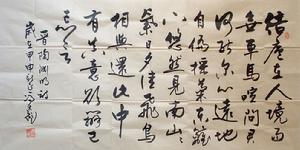 結廬在人境而
無車馬喧問君
何能尔心遠地
自偏採菊東籬
下悠然見南山々
氣日夕佳飛鳥
相與還此中
有真意欲辯已
忘言
晉陶淵明詩
歲在甲申